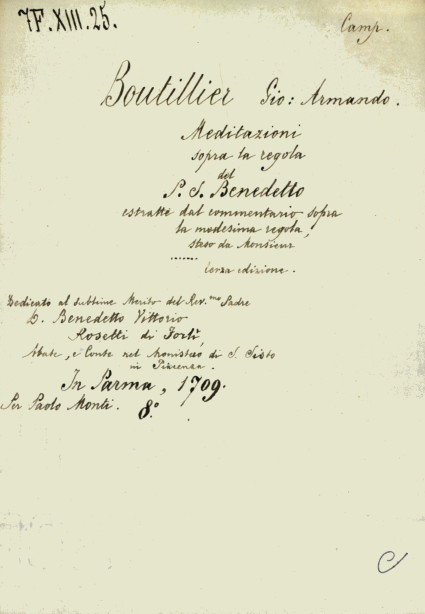 7F.XIII.25.
Camp.
Boutillier Gio: Armando.
Meditazioni
sopra la regola
del
P. S. Benedetto
estratte dal commentario sopra
la medesima regola,
steso da Monsieur
........
terza edizione.
Dedicato al sublime Merito del Rev.mo Padre
D. Benedetto Vittorio
Rosetti di Forlì,
Abate, e Conte nel Monistero di S. Sisto
in Piacenza.
In Parma, 1709.
Per Paolo Monti. 8.°